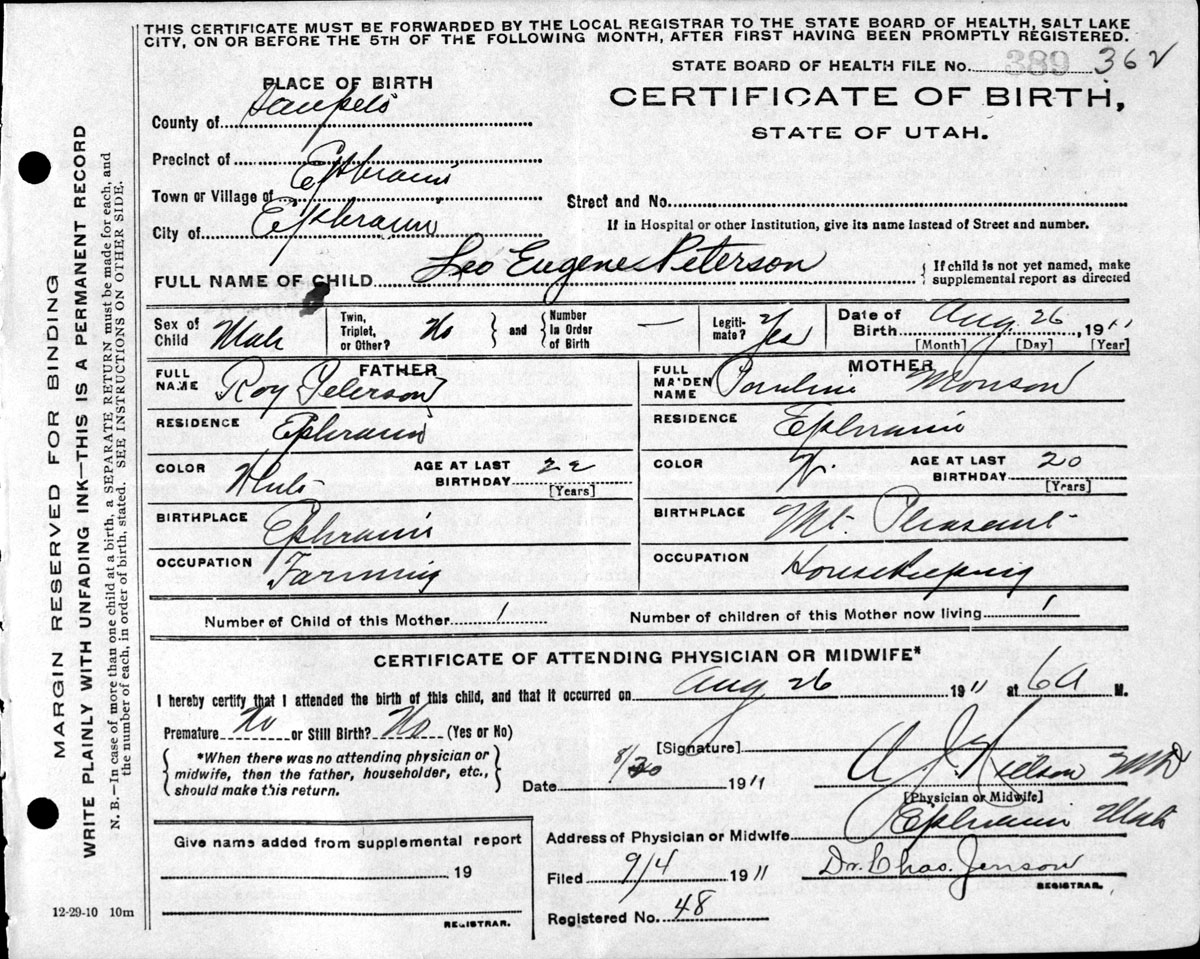 THIS CERTIFICATE MUST BE FORWARDED BY THE LOCAL REGISTRAR TO THE STATE BOARD OF HEALTH, SALT LAKE
CITY, ON OR BEFORE THE 5TH OF THE FOLLOWING MONTH, AFTER FIRST HAVING BEEN PROMPTLY REGISTERED.
STATE BOARD OF HEALTH FILE No. 389 362
CERTIFICATE OF BIRTH,
STATE OF UTAH.
PLACE OF BIRTH
County of Sanpete
Precinct of Ephraim
Town or Village of
City of Ephraim
Street and No.
If in Hospital or other Institution, give its name instead of Street and number.
FULL NAME OF CHILD Leo Eugene Peterson
{ If child is not yet named, make supplemental report as directed
Sex of Child Male
Twin, Triplet, or Other? No } and { Number in Order of Birth —
Legitimate? Yes
Date of Birth Aug. 26, 1911
[Month] [Day] [Year]
FATHER
FULL NAME Roy Peterson
RESIDENCE Ephraim
COLOR White AGE AT LAST BIRTHDAY 22 [Years]
BIRTHPLACE Ephraim
OCCUPATION Farming
MOTHER
FULL MAIDEN NAME Pauline Monson
RESIDENCE Ephraim
COLOR W. AGE AT LAST BIRTHDAY 20 [Years]
BIRTHPLACE Mt. Pleasant
OCCUPATION Housekeeping
Number of Child of this Mother 1 Number of children of this Mother now living 1
CERTIFICATE OF ATTENDING PHYSICIAN OR MIDWIFE*
I hereby certify that I attended the birth of this child, and that it occurred on Aug 26 1911 at 6 A M.
Premature No or Still Birth? No (Yes or No)
{ *When there was no attending physician or midwife, then the father, householder, etc., should make this return. }
[Signature] A J Nielson MD
Date 8/30 1911
[Physician or Midwife]
Address of Physician or Midwife Ephraim Utah
Give name added from supplemental report
19
REGISTRAR.
Filed 9/4 1911 Dr. Chas. Jenson
REGISTRAR.
Registered No. 48
12-29-10 10m
MARGIN RESERVED FOR BINDING
WRITE PLAINLY WITH UNFADING INK—THIS IS A PERMANENT RECORD
N. B.—In case of more than one child at a birth, a SEPARATE RETURN must be made for each, and
the number of each, in order of birth, stated. SEE INSTRUCTIONS ON OTHER SIDE.